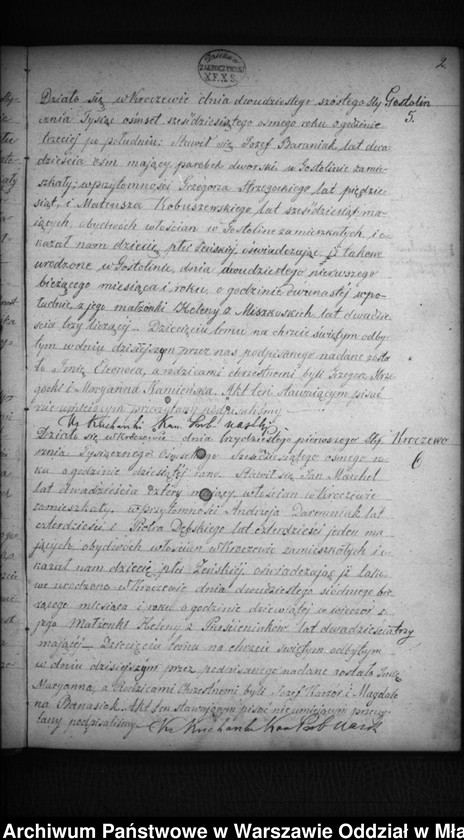 2
Działo się w Kroczewie dnia dwudziestego szóstego Sty Gostolin
cznia Tysiąc ośmset sześdziesiątego osmego roku o godzinie 5.
trzeciej po południu: Stawił się Jozef Baraniak lat dwa
dzieścia osm mający, parobek dworski w Gostolinie zamie
szkały; w przytomności Grzegorza Strzyżockiego lat pięćdzie
siąt, i Mateusza Kobuszewskiego lat sześdziesiąt ma
jących, obydwóch włościan w Gostolinie zamieszkałych, i o
kazał nam dziecię płci żeńskiej, oświadczając, iż takowe
urodzone w Gostolinie, dnia dwudziestego pierwszego
bieżącego miesiąca i roku, o godzinie dwunastej w po
łudnie, z jego małżonki Heleny z lat dwadzie
ścia trzy liczącej. Dziecięciu temu na chrzcie świętym odby
tym w dniu dzisiejszym przez nas podpisanego nadane zosta
ło Imię Eleonora, a rodzicami chrzestnemi byli Grzegorz
i Maryanna Kamieńska. Akt ten stawającym pisać
nie umiejącym przeczytany podpisaliśmy
Działo się w Kroczewie dnia trzydziestego pierwszego Sty Kroczewo
cznia Tysiącznego Osmsetnego Sześdziesiątego osmego ro 6
ku o godzinie dziesiątej rano. Stawił się Jan
lat dwadzieścia cztery mający, włościan w Kroczewie
zamieszkały, w przytomności Andrzeja lat
czterdzieści i Piotra Dębskiego lat czterdzieści jeden ma
jących obydwóch włościan w Kroczewie zamieszkałych i o
kazał nam dziecię płci Żeńskiej, oświadczając iż tako
we urodzone w Kroczewie dnia dwudziestego siódmego bie
żącego miesiąca i roku o godzinie dziewiątej w wieczór z
jego Małżonki Heleny z lat dwadzieścia trzy
mającej. Dziecięciu temu na chrzcie świętym odbytym
w dniu dzisiejszym przez podpisanego nadane zostało Imię
Maryanna, a Rodzicami Chrzestnemi byli Jozef i Magdale
na Banasiak. Akt ten stawającym pisać nieumiejącym przeczy
tany podpisaliśmy
Archiwum Państwowe w Warszawie Oddział w Mła